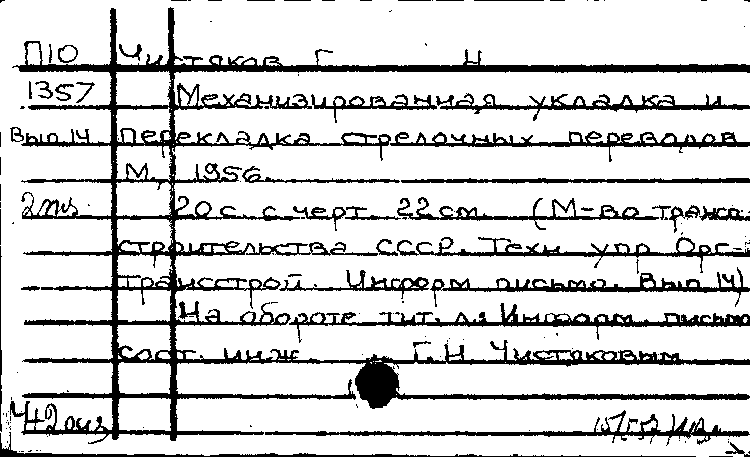 П10 Чистяков Г. Н
1357 Механизированная укладка и
Вып. 14 перекладка стрелочных переводов
М., 1956.
2 экз. 20 с. с черт. 22 см. (М-во транс-
строительства СССР. Техн упр Орг-
трансстрой. Информ письмо. Вып 14)
На обороте тит. л.: Информ. письмо
сост. инж. Г. Н Чистяковым